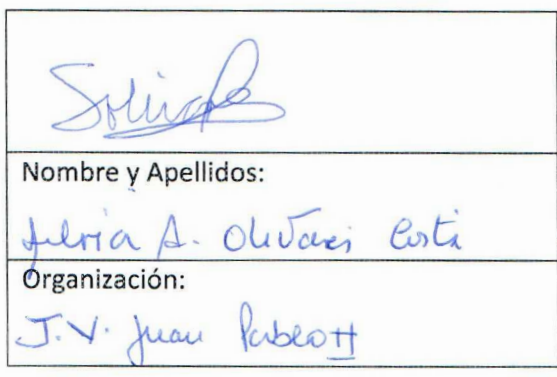 Nombre y Apellidos:
Silvia A. Olivares Costa
Organización:
J.V. Juan Pablo II